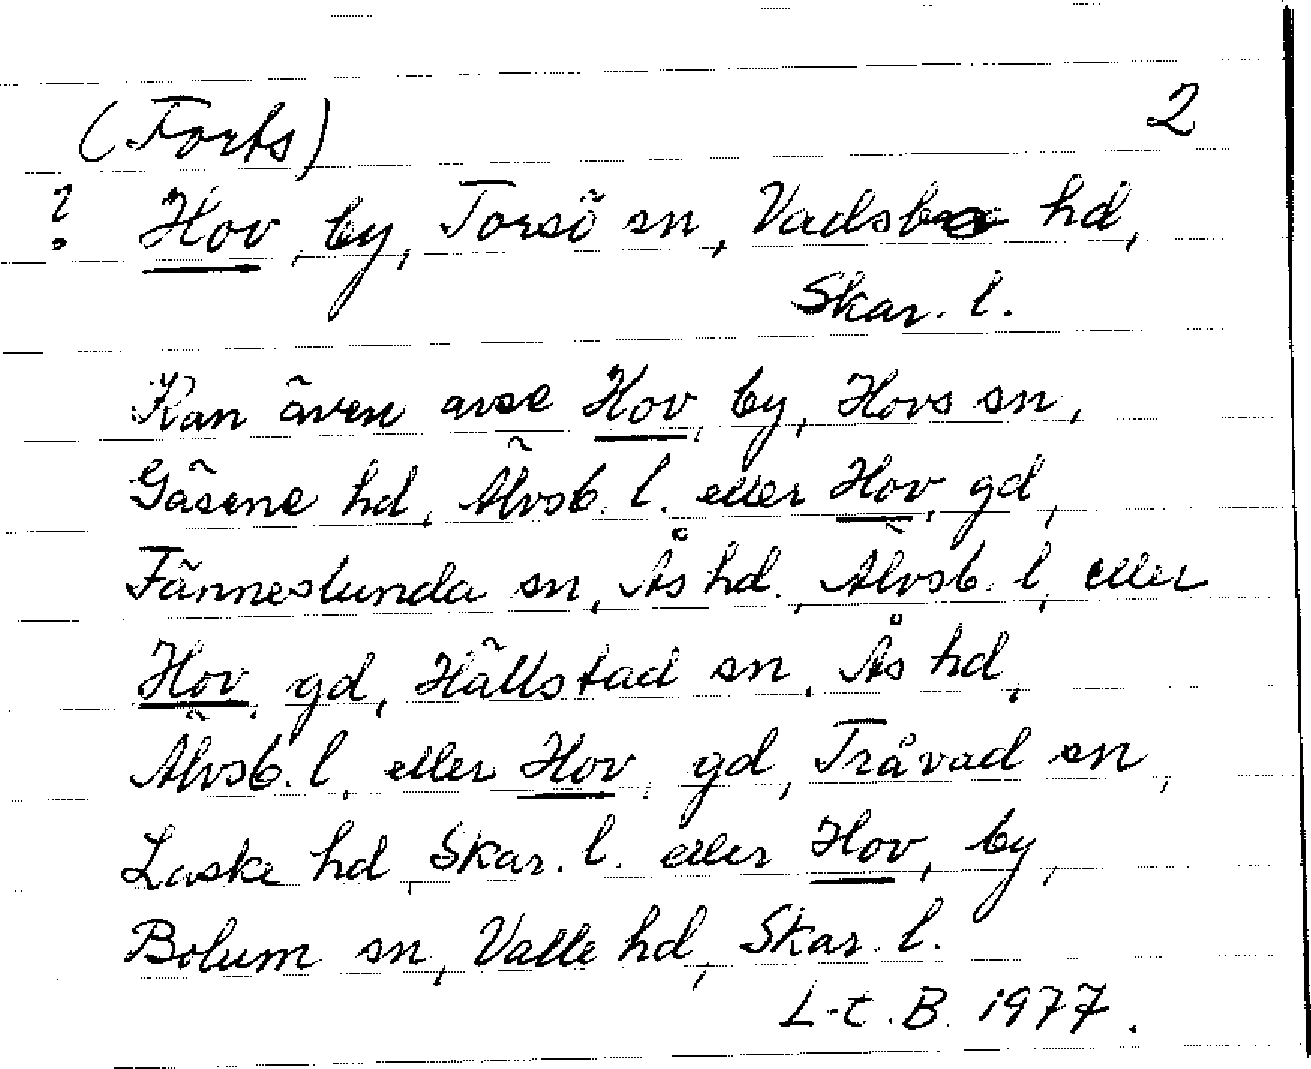 (Forts) 2
? Hov, by, Torsö sn, Vadsbo hd,
Skar. l.
Kan även avse Hov, by, Hovs sn,
Gäsene hd, Älvsb. l. eller Hov, gd,
Fänneslunda sn, Ås hd., Älvsb. l, eller
Hov, gd, Hällstad sn, Ås hd,
Älvsb. l, eller Hov, gd, Tråvad sn,
Laske hd, Skar. l. eller Hov, by,
Bolum sn, Valle hd, Skar. l.
L-t. B. 1977.